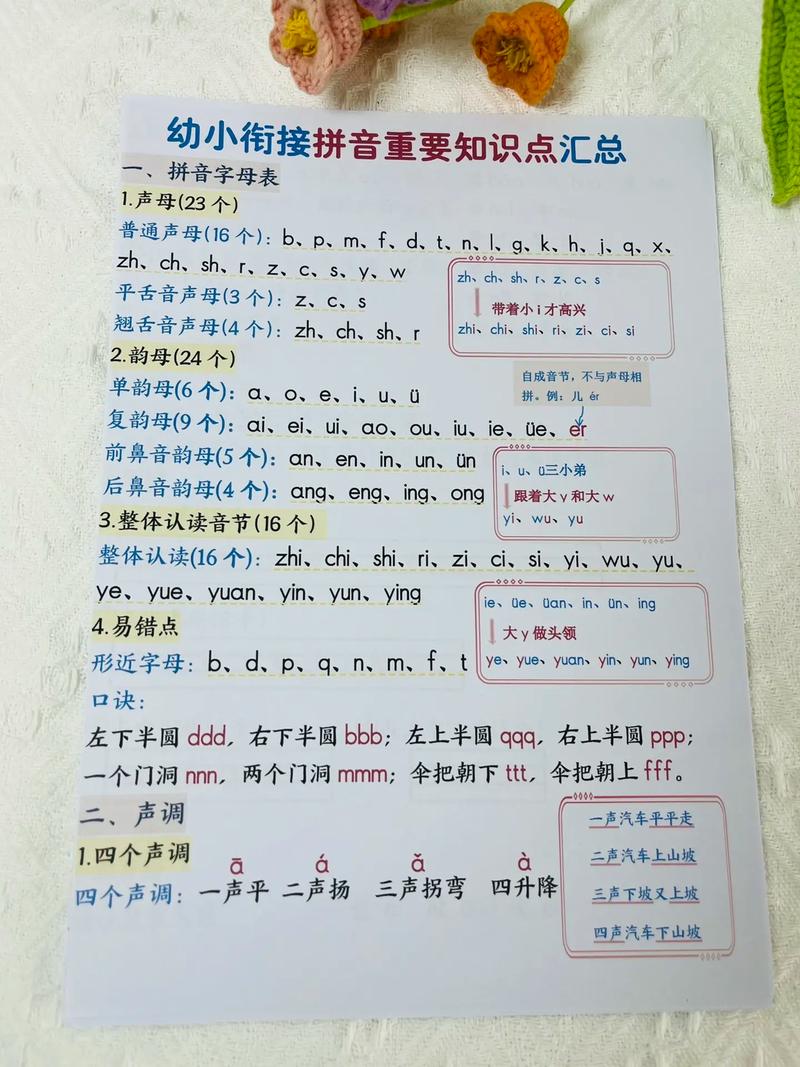 幼小衔接拼音重要知识点汇总
一、拼音字母表
1.声母(23个)
普通声母(16个)：b、p、m、f、d、t、n、l、g、k、h、j、q、x、
zh、ch、sh、r、z、c、s、y、w
平舌音声母(3个)：z、c、s
翘舌音声母(4个)：zh、ch、sh、r
zh、ch、sh、r、z、c、s
带着小i才高兴
zhi、chi、shi、ri、zi、ci、si
2.韵母(24个)
单韵母(6个)：a、o、e、i、u、ü
自成音节，不与声母相
拼。例：儿 ér
复韵母(9个)：ai、ei、ui、ao、ou、iu、ie、üe、er
前鼻音韵母(5个)：an、en、in、un、ün
后鼻音韵母(4个)：ang、eng、ing、ong
i、u、ü三小弟
跟着大y和大w
yi、wu、yu
3.整体认读音节(16个)
整体认读(16个)：zhi、chi、shi、ri、zi、ci、si、yi、wu、yu、
ye、yue、yuan、yin、yun、ying
ie、üe、üan、in、ün、ing
大y做头领
ye、yue、yuan、yin、yun、ying
4.易错点
形近字母：b、d、p、q、n、m、f、t
口诀：
左下半圆ddd，右下半圆bbb；左上半圆qqq，右上半圆ppp；
一个门洞nnn，两个门洞mmm；伞把朝下ttt，伞把朝上fff。
二、声调
1.四个声调
ā á ǎ à
四个声调：一声平 二声扬 三声拐弯 四升降
一声汽车平平走
二声汽车上山坡
三声下坡又上坡
四声汽车下山坡